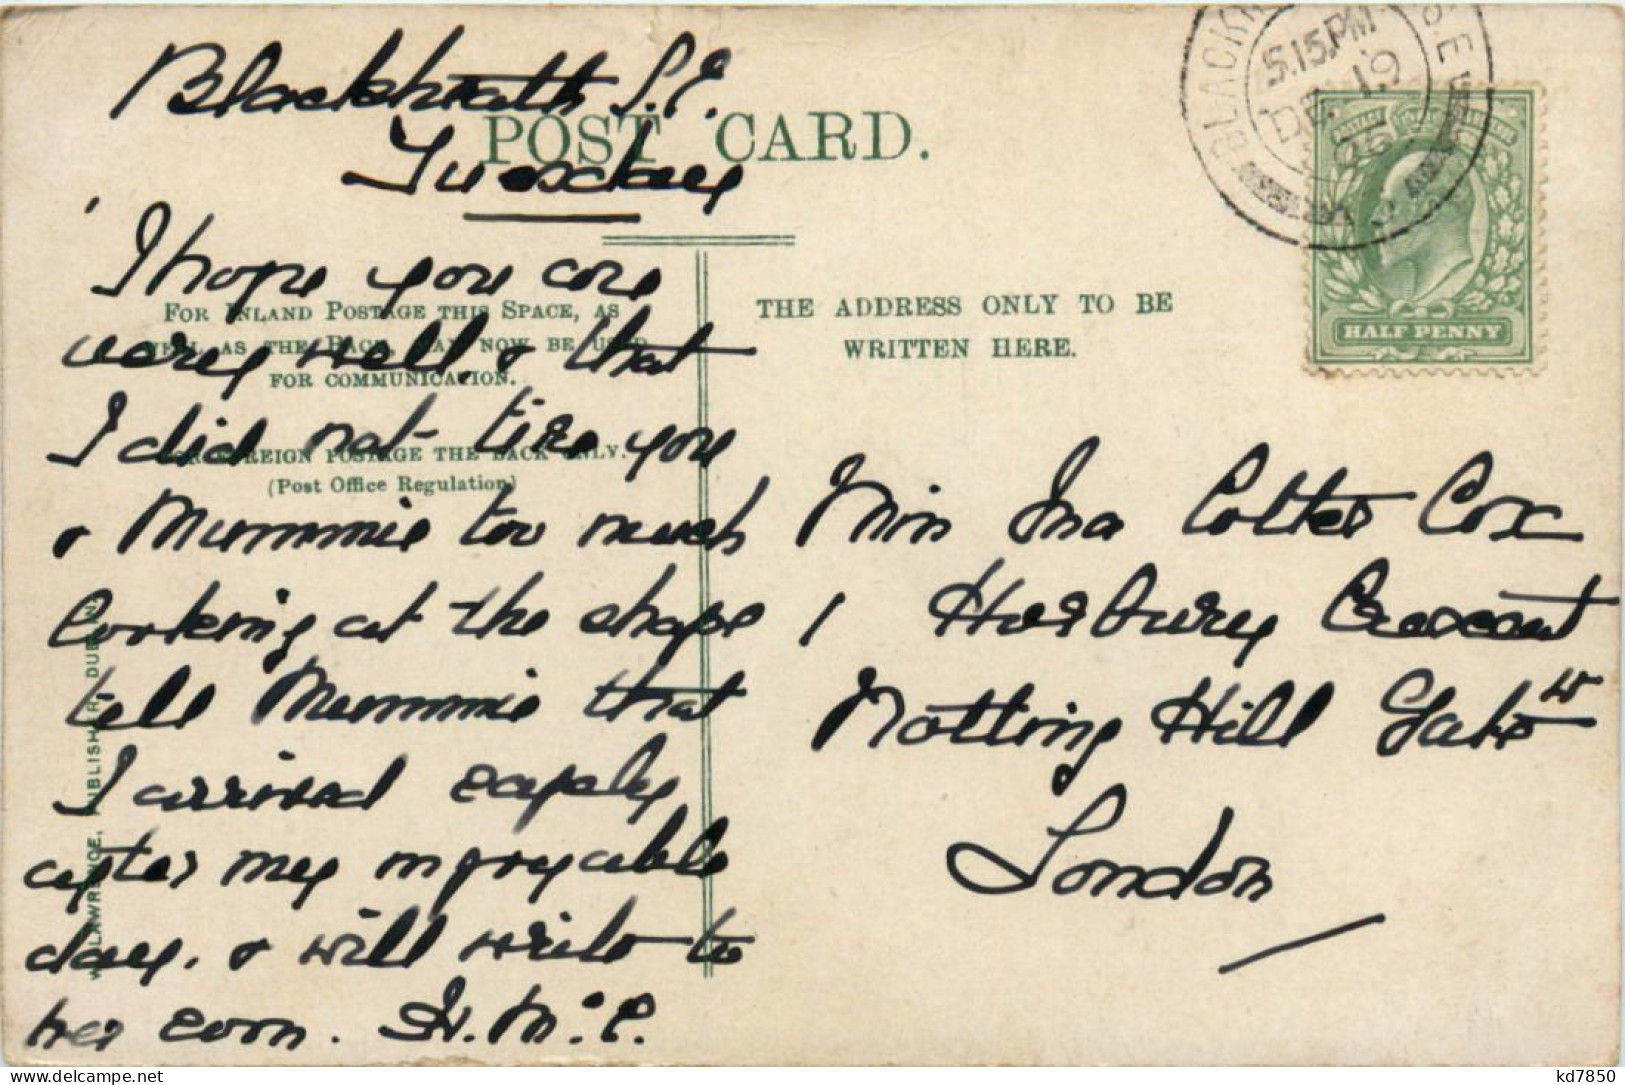 Blackheath S.E.
Tuesday
POST CARD.
I hope you are
very well & that
I did not tire you
& Mummie too much
looking at the shops
tell Mummie that
I arrived safely
after my enjoyable
day. & will write to
her soon. H. M.C.
FOR INLAND POSTAGE THIS SPACE, AS
WELL AS THE BACK, MAY NOW BE USED
FOR COMMUNICATION.
FOR FOREIGN POSTAGE THE BACK ONLY.
(Post Office Regulation)
W. LAWRENCE, PUBLISHER, DUBLIN.
THE ADDRESS ONLY TO BE
WRITTEN HERE.
Miss Ina Cotter Cox
1 Horbury Crescent
Notting Hill Gate W
London
BLACKH S.E
5.15.PM
DE 19
05
HALF PENNY
kd7850